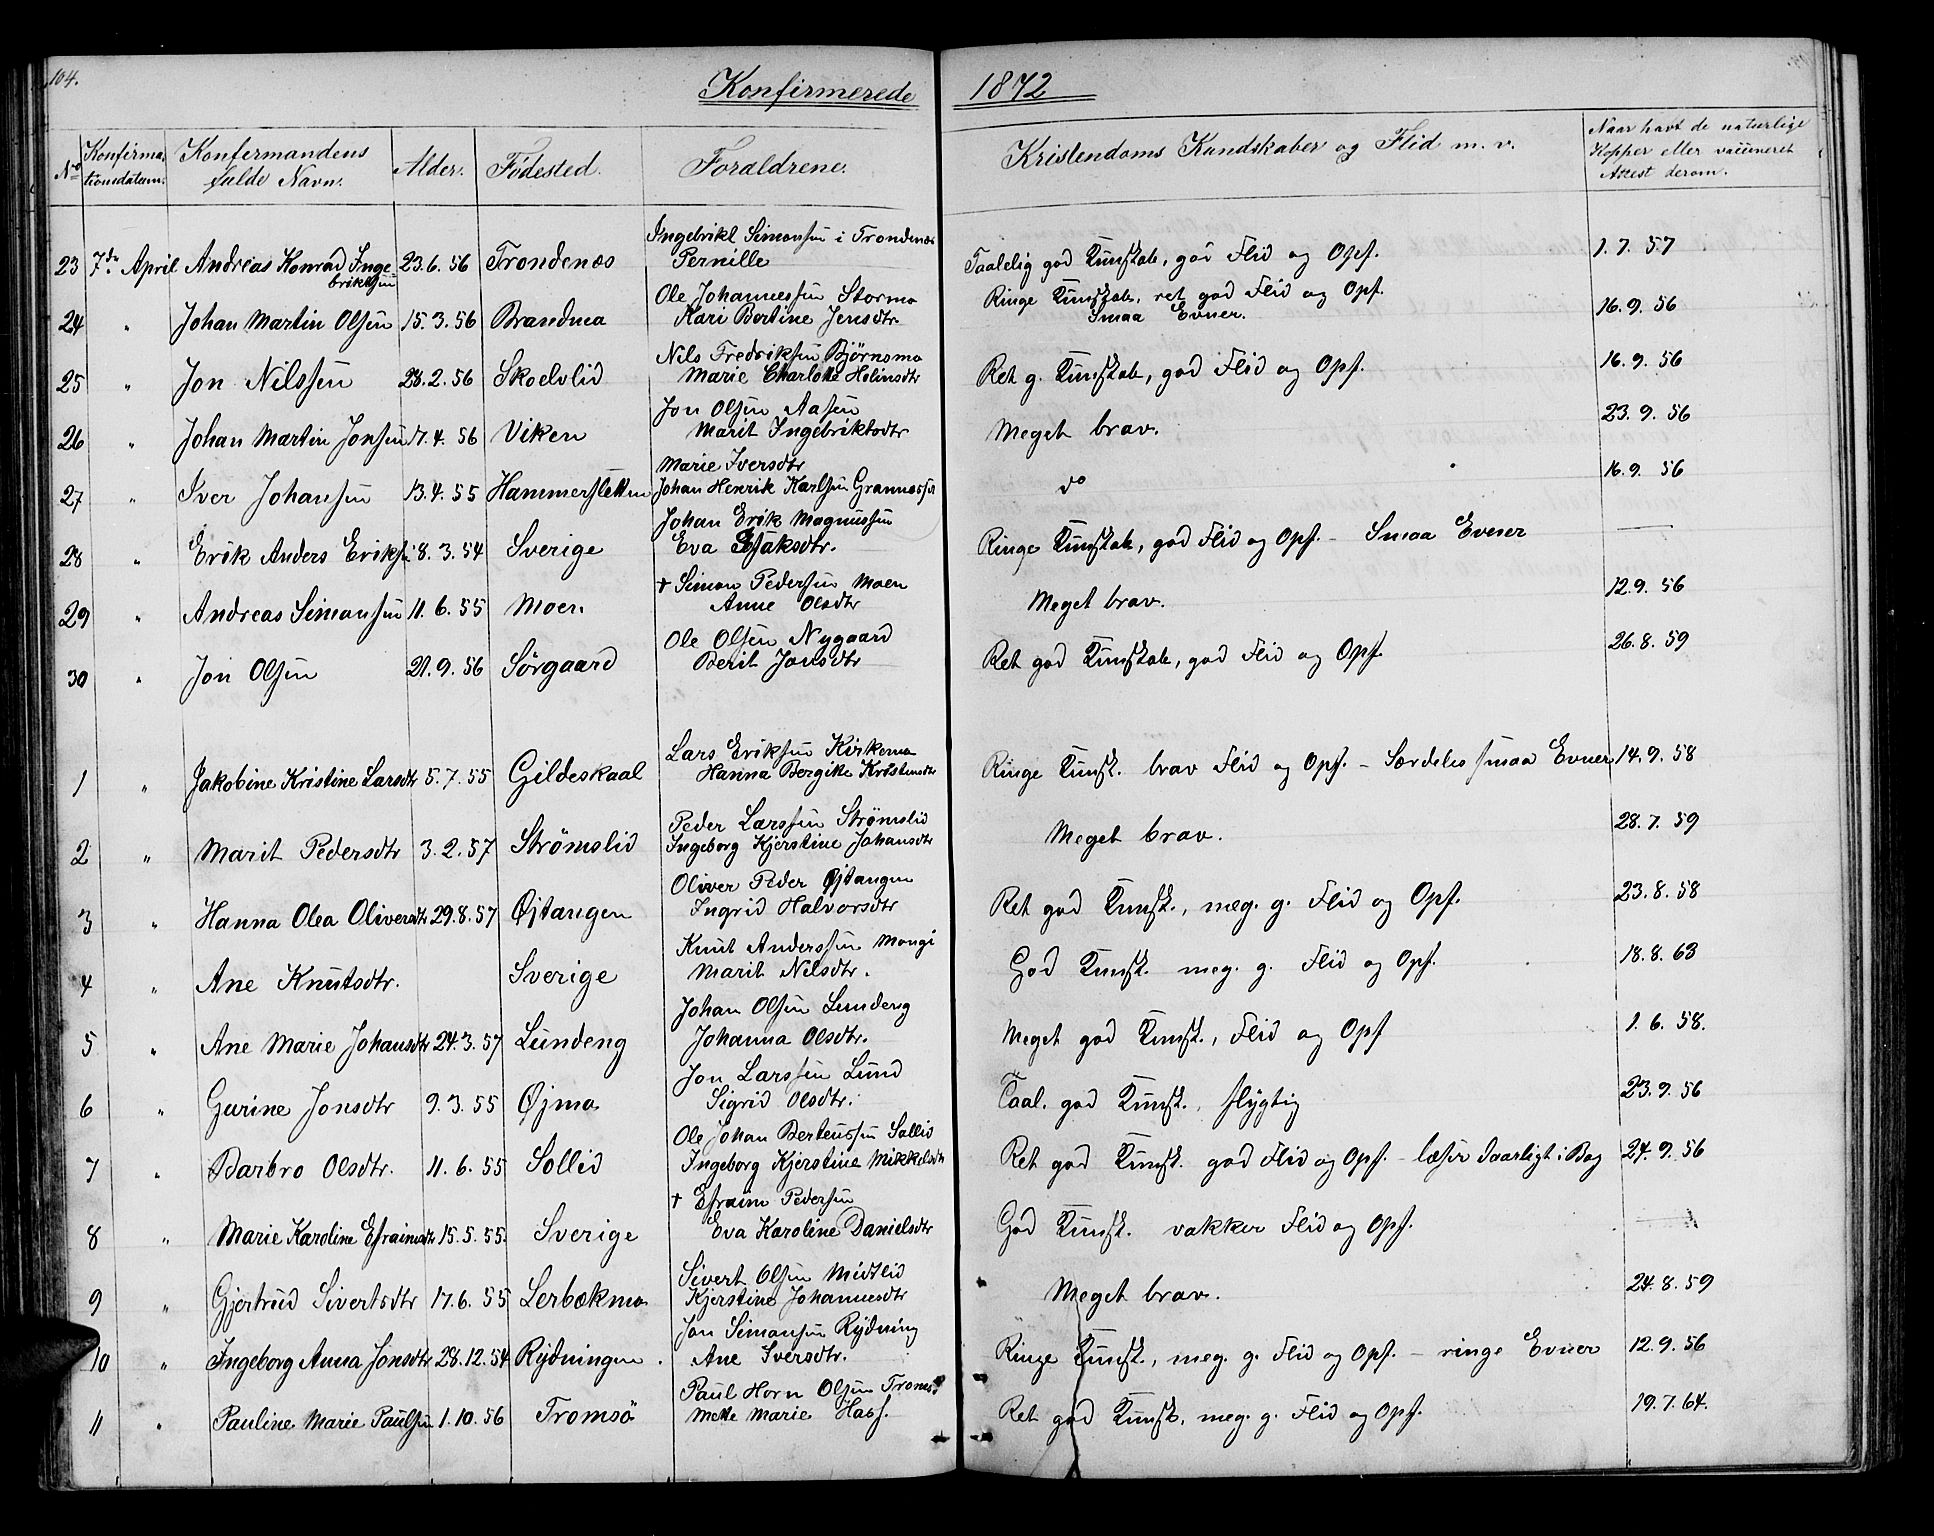 104.
Konfirmerede 1872
No Konfirmationsdatum. Konfermandens fulde Navn. Alder. Fødested. Foraldrene. Kristendoms Kundskaber og Flid m. v. Naar havt de naturlige Kopper eller vaccineret Attest derom.
Ingebrikt Simonsen i Trondenæs
23 7de April Andreas Konrad Ingebriktsen 23.6.56 Trondenæs Pernille Taalelig god Kunskab, god Flid og Opf. 1.7.57
Ole Johannessen Stormo Ringe Kunskab, ret god Flid og Opf.
24 " Johan Martin Olsen 15.3.56 Brandmo Kari Bertine Jensdtr. Smaa Evner. 16.9.56
Nils Fredriksen Bjørnsmo
25 " Jon Nilssen 28.2.56 Skoelvlid Marie Charlotte Helinsdtr Ret g. Kunskab, god Flid og Opf. 16.9.56
Jon Olsen Aasen
26 " Johan Martin Jonsen 17.4.56 Viken Marit Ingebriktsdtr Meget brav. 23.9.56
Marie Iversdtr
27 " Iver Johansen 13.4.55 Hammersletten Johan Henrik Karlsen Grannæsset do 16.9.56
Johan Erik Magnussen
28 " Erik Anders Eriksen 18.3.54 Sverige Eva Esaksdtr. Ringe Kunskab, god Flid og Opf. - Smaa Evner —
+ Simon Pedersen Moen
29 " Andreas Simonsen 11.6.55 Moen Anne Olsdtr Meget brav. 12.9.56
Ole Olsen Nygaard
30 " Jon Olsen 21.9.56 Sörgaard Berit Jonsdtr Ret god Kunskab, god Flid og Opf. 26.8.59
Lars Eriksen Kirkemo
1 " Jakobine Kristine Larsdtr 5.7.55 Gildeskaal Hanna Bergitte Kristensdtr Ringe Kunsk. brav Flid og Opf. - Særdeles smaa Evner 14.9.58
Peder Larssen Strømslid
2 " Marit Pedersdtr 3.2.57 Strømslid Ingeborg Kjerstine Johansdtr Meget brav. 28.7.59
Oliver Peder Øjtangen
3 " Hanna Olea Oliversdtr 29.8.57 Øjtangen Ingrid Halvorsdtr Ret god Kunsk., meg. g. Flid og Opf. 23.8.58
Knut Anderssen Mongi
4 " Ane Knutsdtr. Sverige Marit Nilsdtr. God Kunsk. meg. g. Flid og Opf. 18.8.63
Johan Olsen Lundeng
5 " Ane Marie Johansdtr 24.3.57 Lundeng Johanna Olsdtr. Meget god Kunsk., Flid og Opf 1.6.58.
Jon Larssen Lund
6 " Gurine Jonsdtr 9.3.55 Øjmo Sigrid Olsdtr. Taal. god Kunsk., flygtig 23.9.56
Ole Johan Berteussen Sollid
7 " Barbro Olsdtr. 11.6.55 Sollid Ingeborg Kjerstine Mikkelsdtr Ret god Kunsk. god Flid og Opf. - læser daarligt i Bog 24.9.56
+ Efraim Pedersen
8 " Marie Karoline Efraimsdtr 15.5.55 Sverige Eva Karoline Danielsdtr God Kunsk. vakker Flid og Opf. —
Sivert Olsen Midtlid
9 " Gjertrud Sivertsdtr 17.6.55 Lerbækmo Kjerstine Johannesdtr Meget brav. 24.8.59
Jon Simonsen Rydning
10 " Ingeborg Anna Jonsdtr 28.12.54 Rydningen Ane Iversdtr. Ringe Kunsk., meg. g. Flid og Opf. - ringe Evner 12.9.56
Paul Horn Olsen Tromsö
11 " Pauline Marie Paulsen 1.10.56 Tromsö Mette Marie Hass. Ret god Kunsk., meg. g. Flid og Opf. 19.7.64.